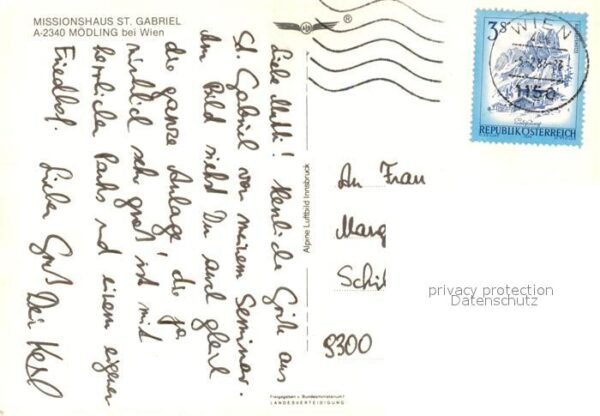 MISSIONSHAUS ST. GABRIEL
A-2340 MÖDLING bei Wien
®
Liebe Mutti! Herzliche Grüße aus
St. Gabriel von meinem Seminar.
Am Bild siehst Du auch gleich
die ganze Anlage, die ja
wirklich sehr groß ist mit
herrlichem Park und einem eigenen
Friedhof. Lieber Gruß Dein Karl
Alpine Luftbild Innsbruck
Freigegeben v. Bundesministerium f.
LANDESVERTEIDIGUNG
WIEN
1150
3,8
REPUBLIK ÖSTERREICH
An Frau
Marg
Schil
9300
privacy protection
Datenschutz